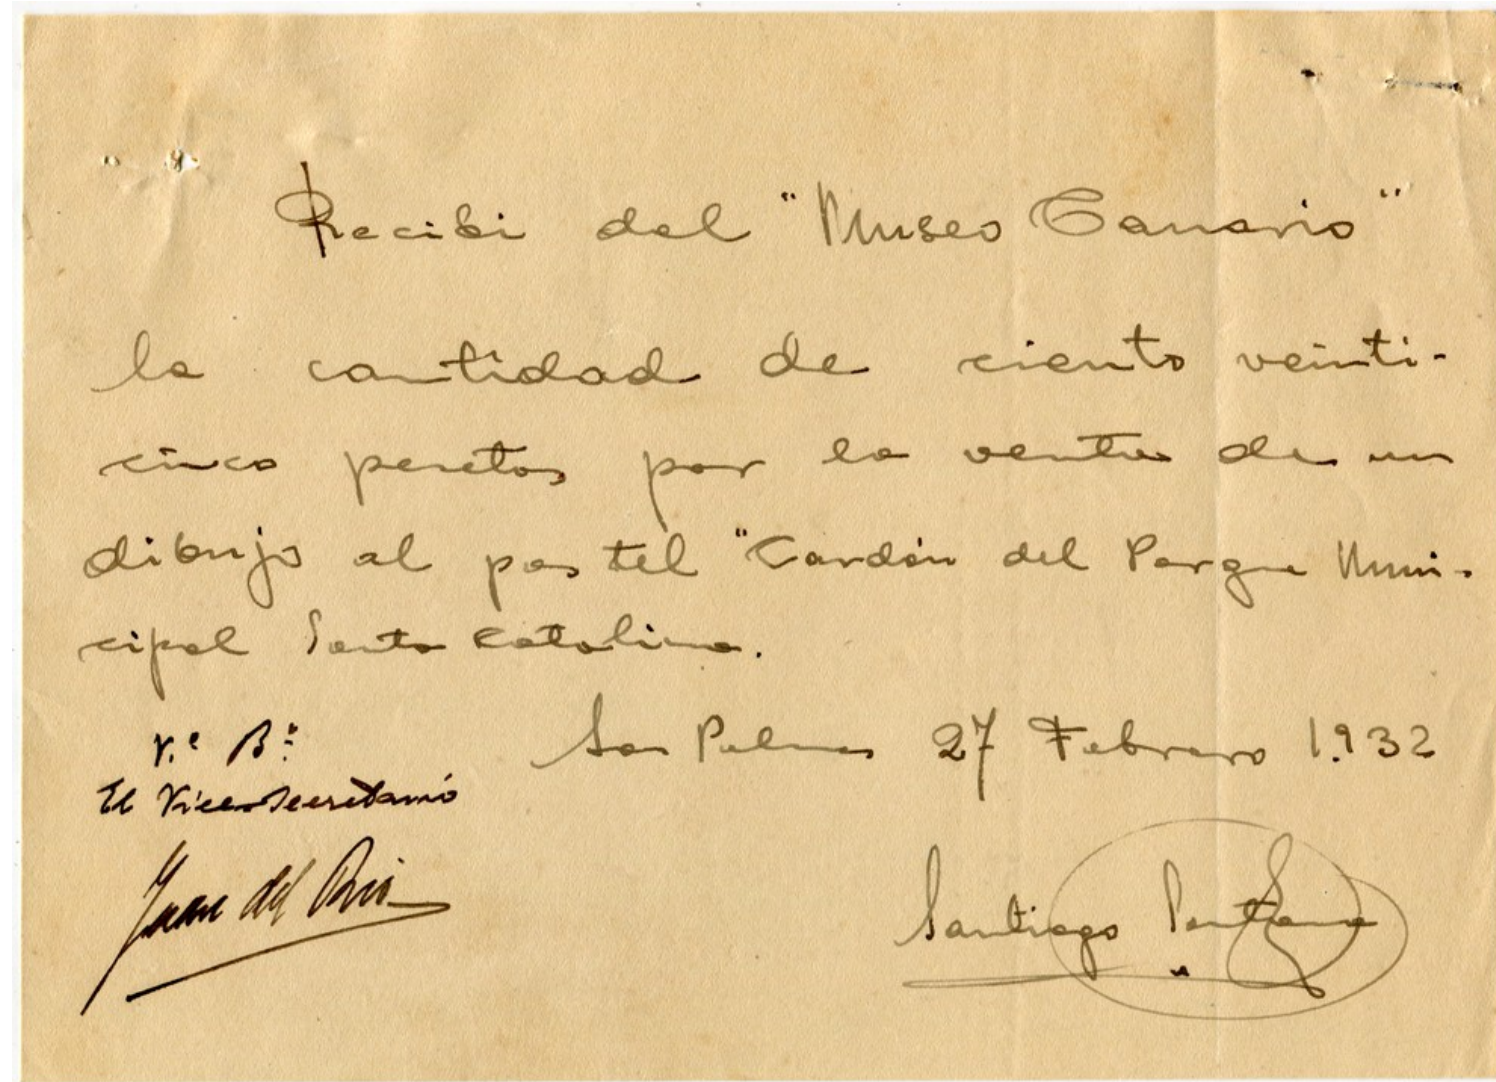 Recibi del "Museo Canario"
la cantidad de ciento veinti-
cinco pesetas por la venta de un
dibujo al pastel "Cardón del Parque Muni-
cipal Santa Catalina.
V.º B.º
Las Palmas 27 Febrero 1.932
El Vice-Secretario
Juan del Rio
Santiago Santana